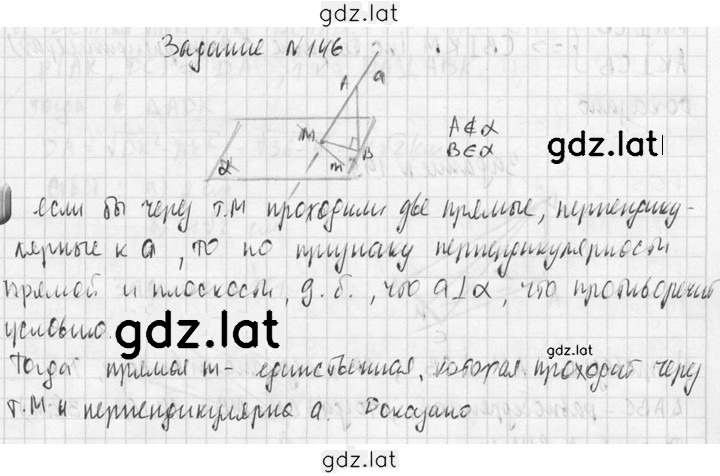 gdz.lat
Задание N146
A a
A∉α
B∈α
gdz.lat
M
B
m
α
если бы через т.М проходили две прямые, перпендику-
лярные к a, то по признаку перпендикулярности
прямой и плоскости, д.б., что a⊥α, что противоречит
условию.
gdz.lat
gdz.lat
Тогда прямая m - единственная, которая проходит через
т.М и перпендикулярна a. Доказано
gdz.lat